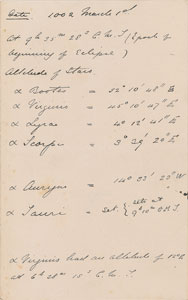 Date 1002 March 1st
At 9h 25m 28s G.M.T (Epoch of
beginning of Eclipse)
Altitude of Stars
α Bootes = 52° 10' 48" E
α Virginis = 45° 10' 47" E
α Lyrae = 4° 12' 41" E
α Scorpi = 3° 29' 20" E
α Aurigae = 14° 03' 23" W
α Tauri = Set { sets at
9h 10m
α Virginis had an altitude of
at 6h 28m 15s G.M.T.